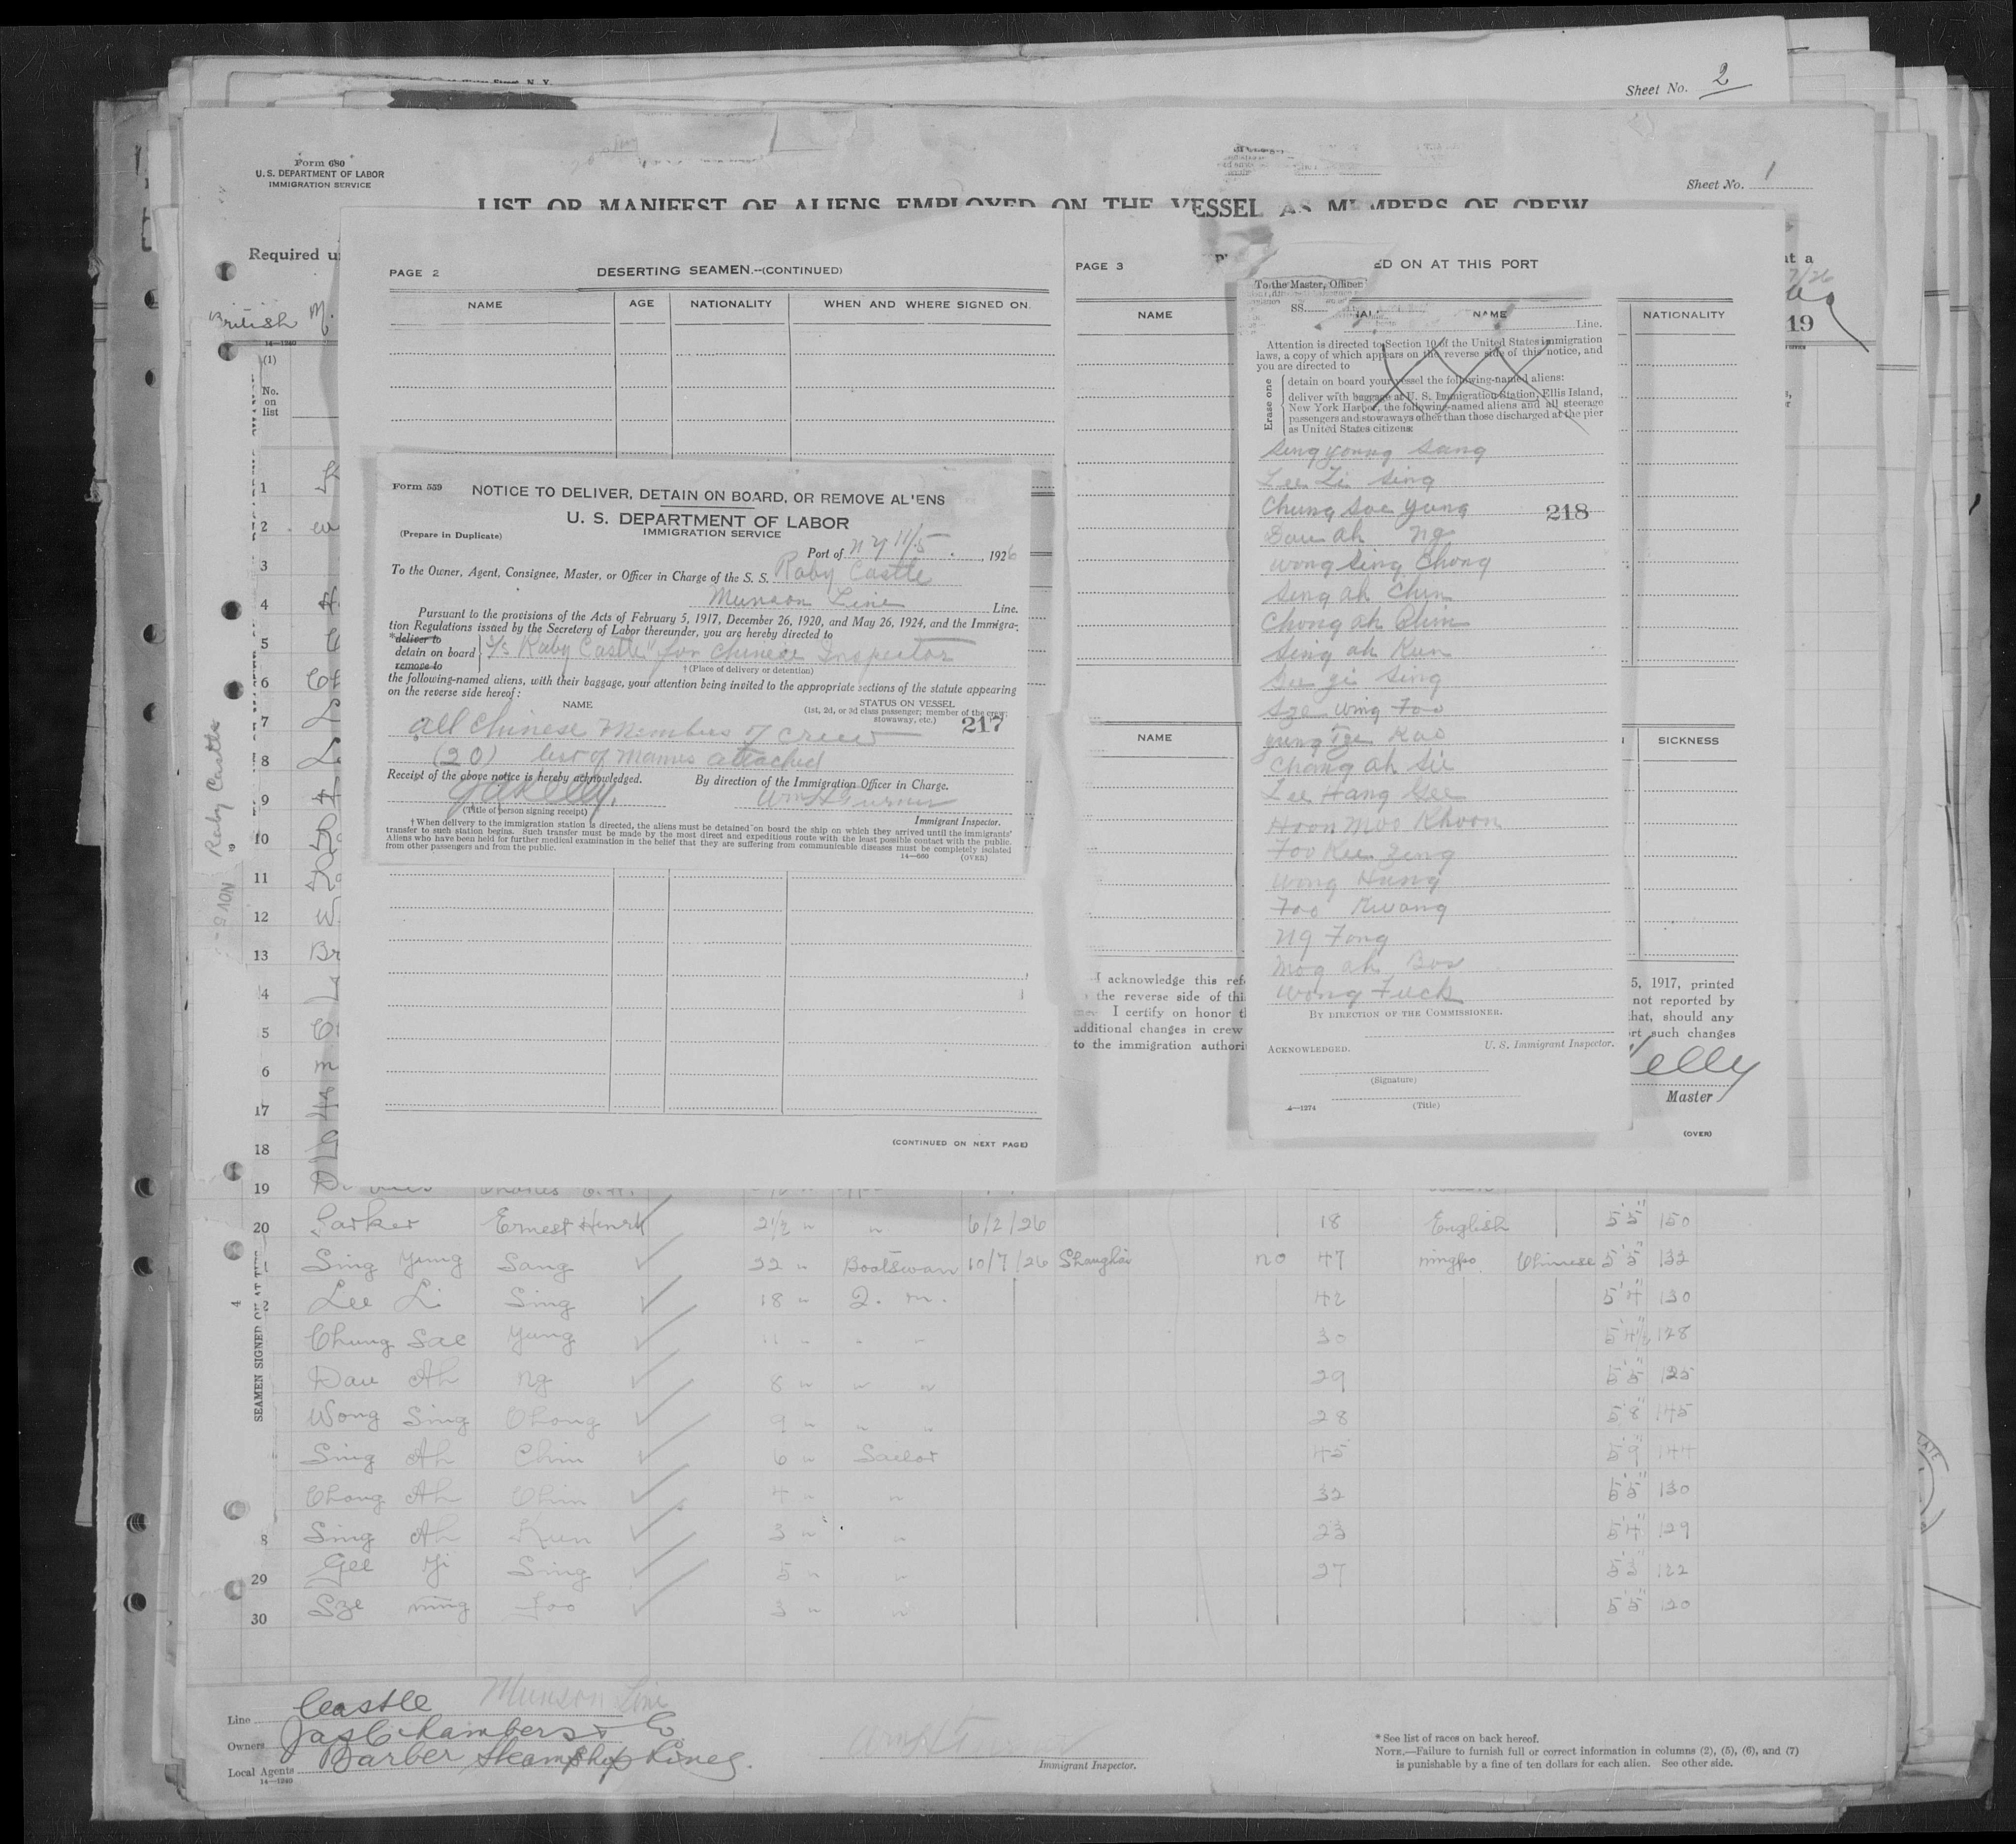 Sheet No. 2
Form 680
U. S. DEPARTMENT OF LABOR
IMMIGRATION SERVICE
Sheet No. 1
LIST OR MANIFEST OF ALIENS EMPLOYED ON THE VESSEL AS MEMBERS OF CREW
Required u
British M.
14—1240
(1)
No.
on
list
19
PAGE 2
DESERTING SEAMEN.--(CONTINUED)
NAME AGE NATIONALITY WHEN AND WHERE SIGNED ON.
Form 559
NOTICE TO DELIVER, DETAIN ON BOARD, OR REMOVE ALIENS
U. S. DEPARTMENT OF LABOR
IMMIGRATION SERVICE
(Prepare in Duplicate)
Port of N Y 11/5, 1926
To the Owner, Agent, Consignee, Master, or Officer in Charge of the S. S. Raby Castle
Munson Line Line.
Pursuant to the provisions of the Acts of February 5, 1917, December 26, 1920, and May 26, 1924, and the Immigra-
tion Regulations issued by the Secretary of Labor thereunder, you are hereby directed to
*deliver to
detain on board
remove to
S/S Raby Castle" for Chinese Inspector
† (Place of delivery or detention)
the following-named aliens, with their baggage, your attention being invited to the appropriate sections of the statute appearing
on the reverse side hereof:
NAME STATUS ON VESSEL
(1st, 2d, or 3d class passenger; member of the crew;
stowaway, etc.)
217
All Chinese Members of crew
(20) list of names attached
Receipt of the above notice is hereby acknowledged. By direction of the Immigration Officer in Charge.
(Title of person signing receipt)
Immigrant Inspector.
† When delivery to the immigration station is directed, the aliens must be detained on board the ship on which they arrived until the immigrants'
transfer to such station begins. Such transfer must be made by the most direct and expeditious route with the least possible contact with the public.
Aliens who have been held for further medical examination in the belief that they are suffering from communicable diseases must be completely isolated
from other passengers and from the public.
14—660 (OVER)
(CONTINUED ON NEXT PAGE)
PAGE 3
ED ON AT THIS PORT
NAME NAME NATIONALITY
NAME SICKNESS
To the Master, Officer
SS.
Line.
Attention is directed to Section 10 of the United States immigration
laws, a copy of which appears on the reverse side of this notice, and
you are directed to
Erase one
detain on board your vessel the following-named aliens:
deliver with baggage at U. S. Immigration Station, Ellis Island,
New York Harbor, the following-named aliens and all steerage
passengers and stowaways other than those discharged at the pier
as United States citizens:
Sing young Sang
Lee Li Sing
Chung Soe Yung
218
Dau ah Ng
Wong Sing Chong
Sing ah Chin
Chong ah Chin
Sing ah Kun
Gee yi Sing
Sze Wing Foo
Yung Tze Kao
Chong ah Sie
Lee Hang Gee
Hoon Moo Khoon
Foo Kee Zeng
Wong Hung
Foo Kwong
Ng Fong
Mog ah Bow
Wong Fuck
BY DIRECTION OF THE COMMISSIONER.
ACKNOWLEDGED.
U. S. Immigrant Inspector.
(Signature)
(Title)
4—1274
I acknowledge this ref
the reverse side of thi
I certify on honor t
additional changes in crew
to the immigration authori
5, 1917, printed
not reported by
that, should any
ort such changes
Kelly
Master
(OVER)
Raby Castle
NOV 5
SEAMEN SIGNED ON AT THIS
1
2
3
4
5
6
7
8
9
10
11
12
13
4
5
6
17
18
19
20 Parker Ernest Henry 2½ " " 6/2/26 18 English 5'5" 150
1 Sing Yung Sang 22 " Boatswan 10/7/26 Shanghai no 47 ningpo Chinese 5'5" 132
2 Lee Li Sing 18 " Q. m. 42 5'4" 130
Chung Sae Yung 11 " " " 30 5'4½" 128
Dau Ah Ng 8 " " " 29 5'5" 125
Wong Sing Chong 9 " " " 28 5'8" 145
Sing Ah Chin 6 " Sailor 45 5'9" 144
Chong Ah Chin 4 " " 32 5'5" 130
8 Sing Ah Kun 3 " " 23 5'4" 129
29 Gee Yi Sing 5 " " 27 5'3" 122
30 Sze ming Foo 3 " " 5'5" 120
Line Castle Munson Line
Owners Jas Chambers & Co
Local Agents Barber Steamship Lines.
14—1240
Immigrant Inspector.
* See list of races on back hereof.
NOTE.—Failure to furnish full or correct information in columns (2), (5), (6), and (7)
is punishable by a fine of ten dollars for each alien. See other side.